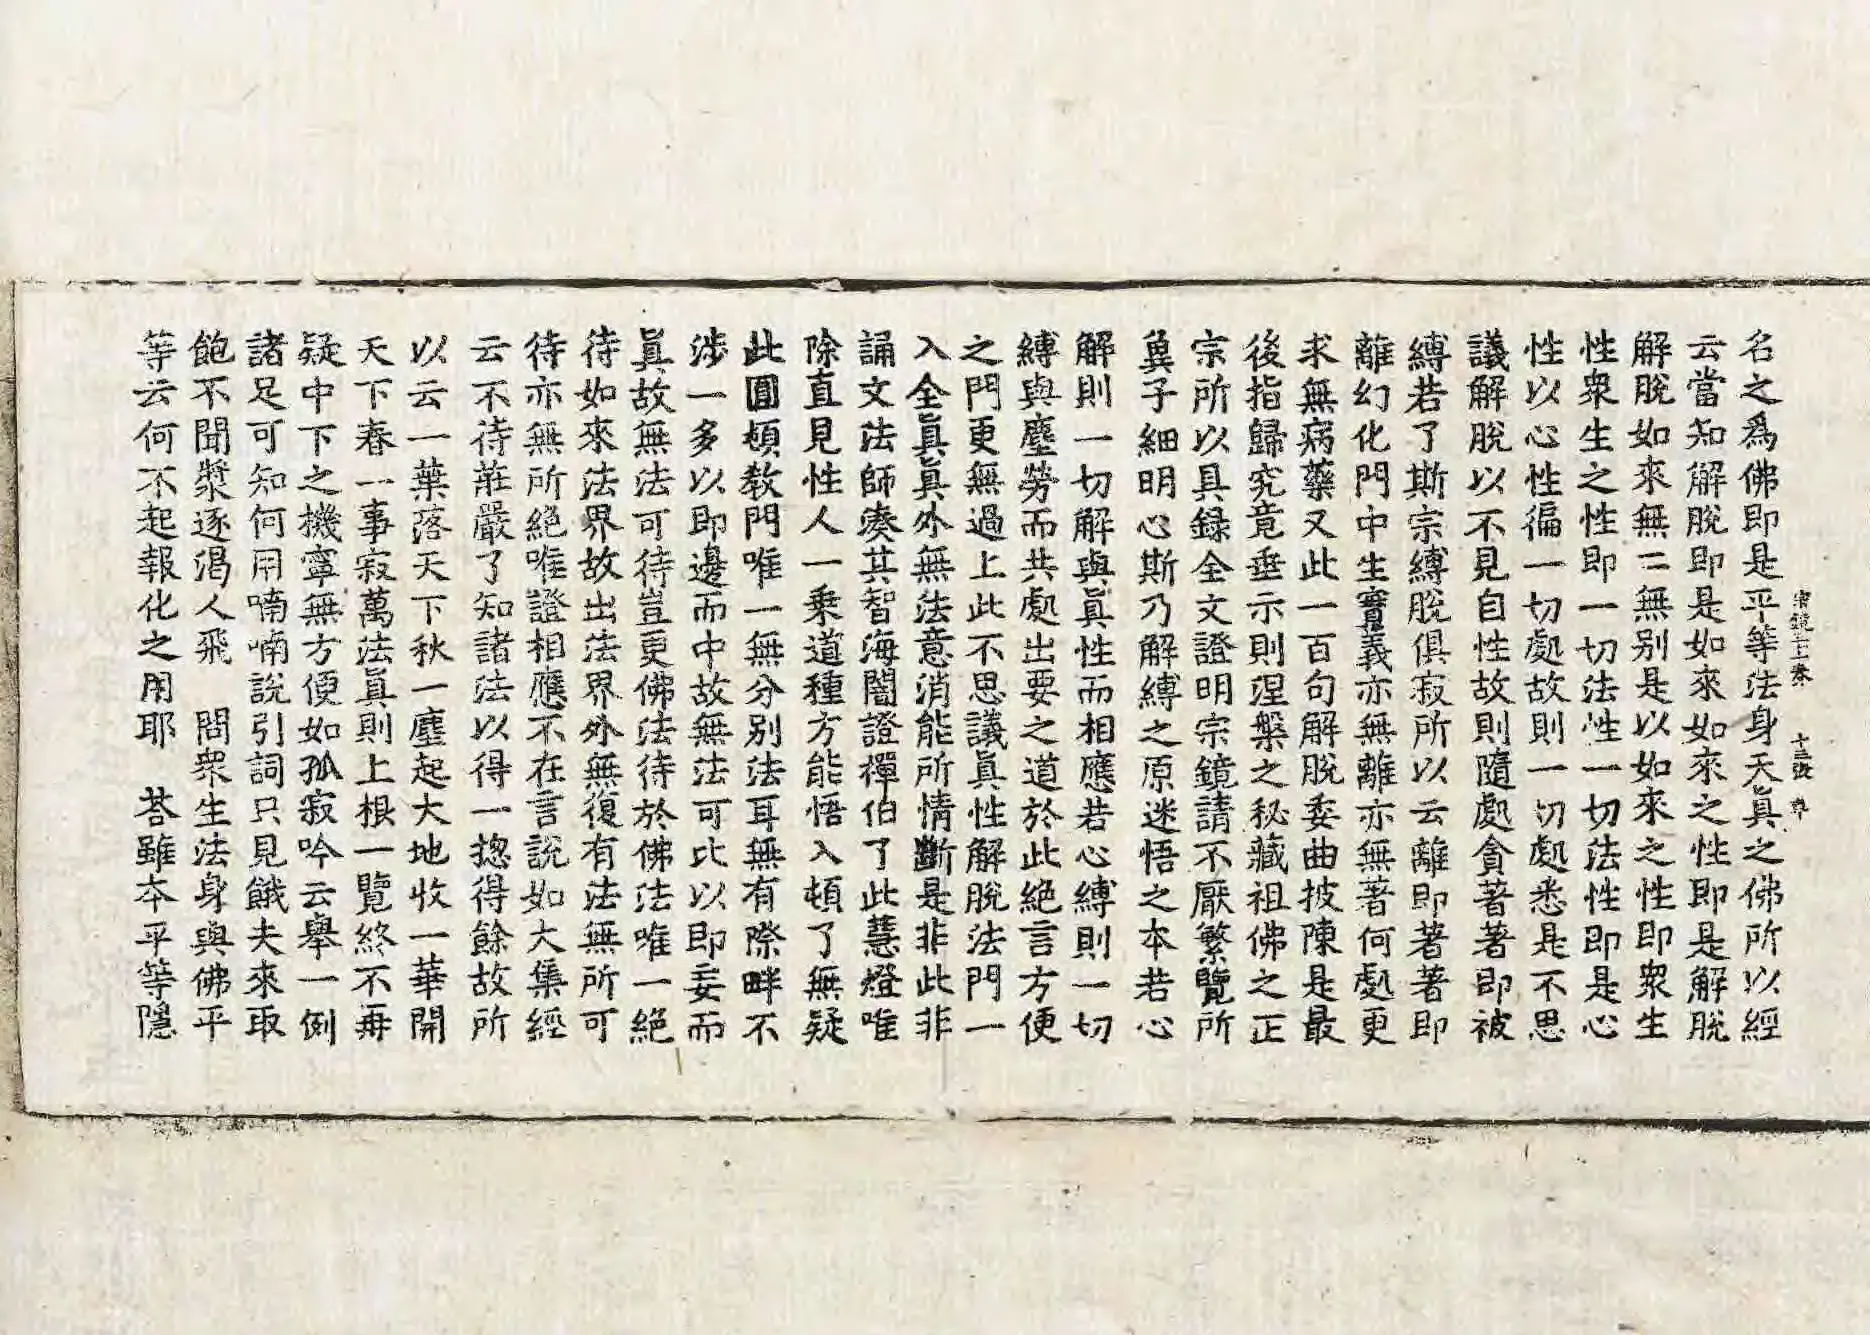 名之爲佛即是平等法身天眞之佛所以經
云當知解脫即是如來如來之性即是解脫
解脫如來無二無别是以如來之性即衆生
性衆生之性即一切法性一切法性即是心
性以心性徧一切處故則一切處悉是不思
議解脫以不見自性故則隨處貪著著即被
縛若了斯宗縛脫俱寂所以云離即著著即
離幻化門中生實義亦無離亦無著何處更
求無病藥又此一百句解脫委曲披陳是最
後指歸究竟垂示則涅槃之秘藏祖佛之正
宗所以具録全文證明宗鏡請不厭繁覽所
兾子細明心斯乃解縛之原迷悟之本若心
解則一切解與眞性而相應若心縛則一切
縛與塵勞而共處出要之道於此絶言方便
之門更無過上此不思議眞性解脫法門一
入全眞眞外無法意消能所情斷是非此非
誦文法師湊其智海闇證禪伯了此慧燈唯
除直見性人一乗道種方能悟入頓了無疑
此圓頓教門唯一無分别法耳無有際畔不
涉一多以即邊而中故無法可比以即妄而
眞故無法可待豈更佛法待於佛法唯一絶
待如來法界故出法界外無復有法無所可
待亦無所絶唯證相應不在言說如大集經
云不待莊嚴了知諸法以得一揔得餘故所
以云一葉落天下秋一塵起大地收一華開
天下春一事寂萬法眞則上根一覽終不再
疑中下之機寧無方便如孤寂吟云舉一例
諸足可知何用喃喃說引詞只見餓夫來取
飽不聞漿逐渴人飛　問衆生法身與佛平
等云何不起報化之用耶　荅雖本平等隱